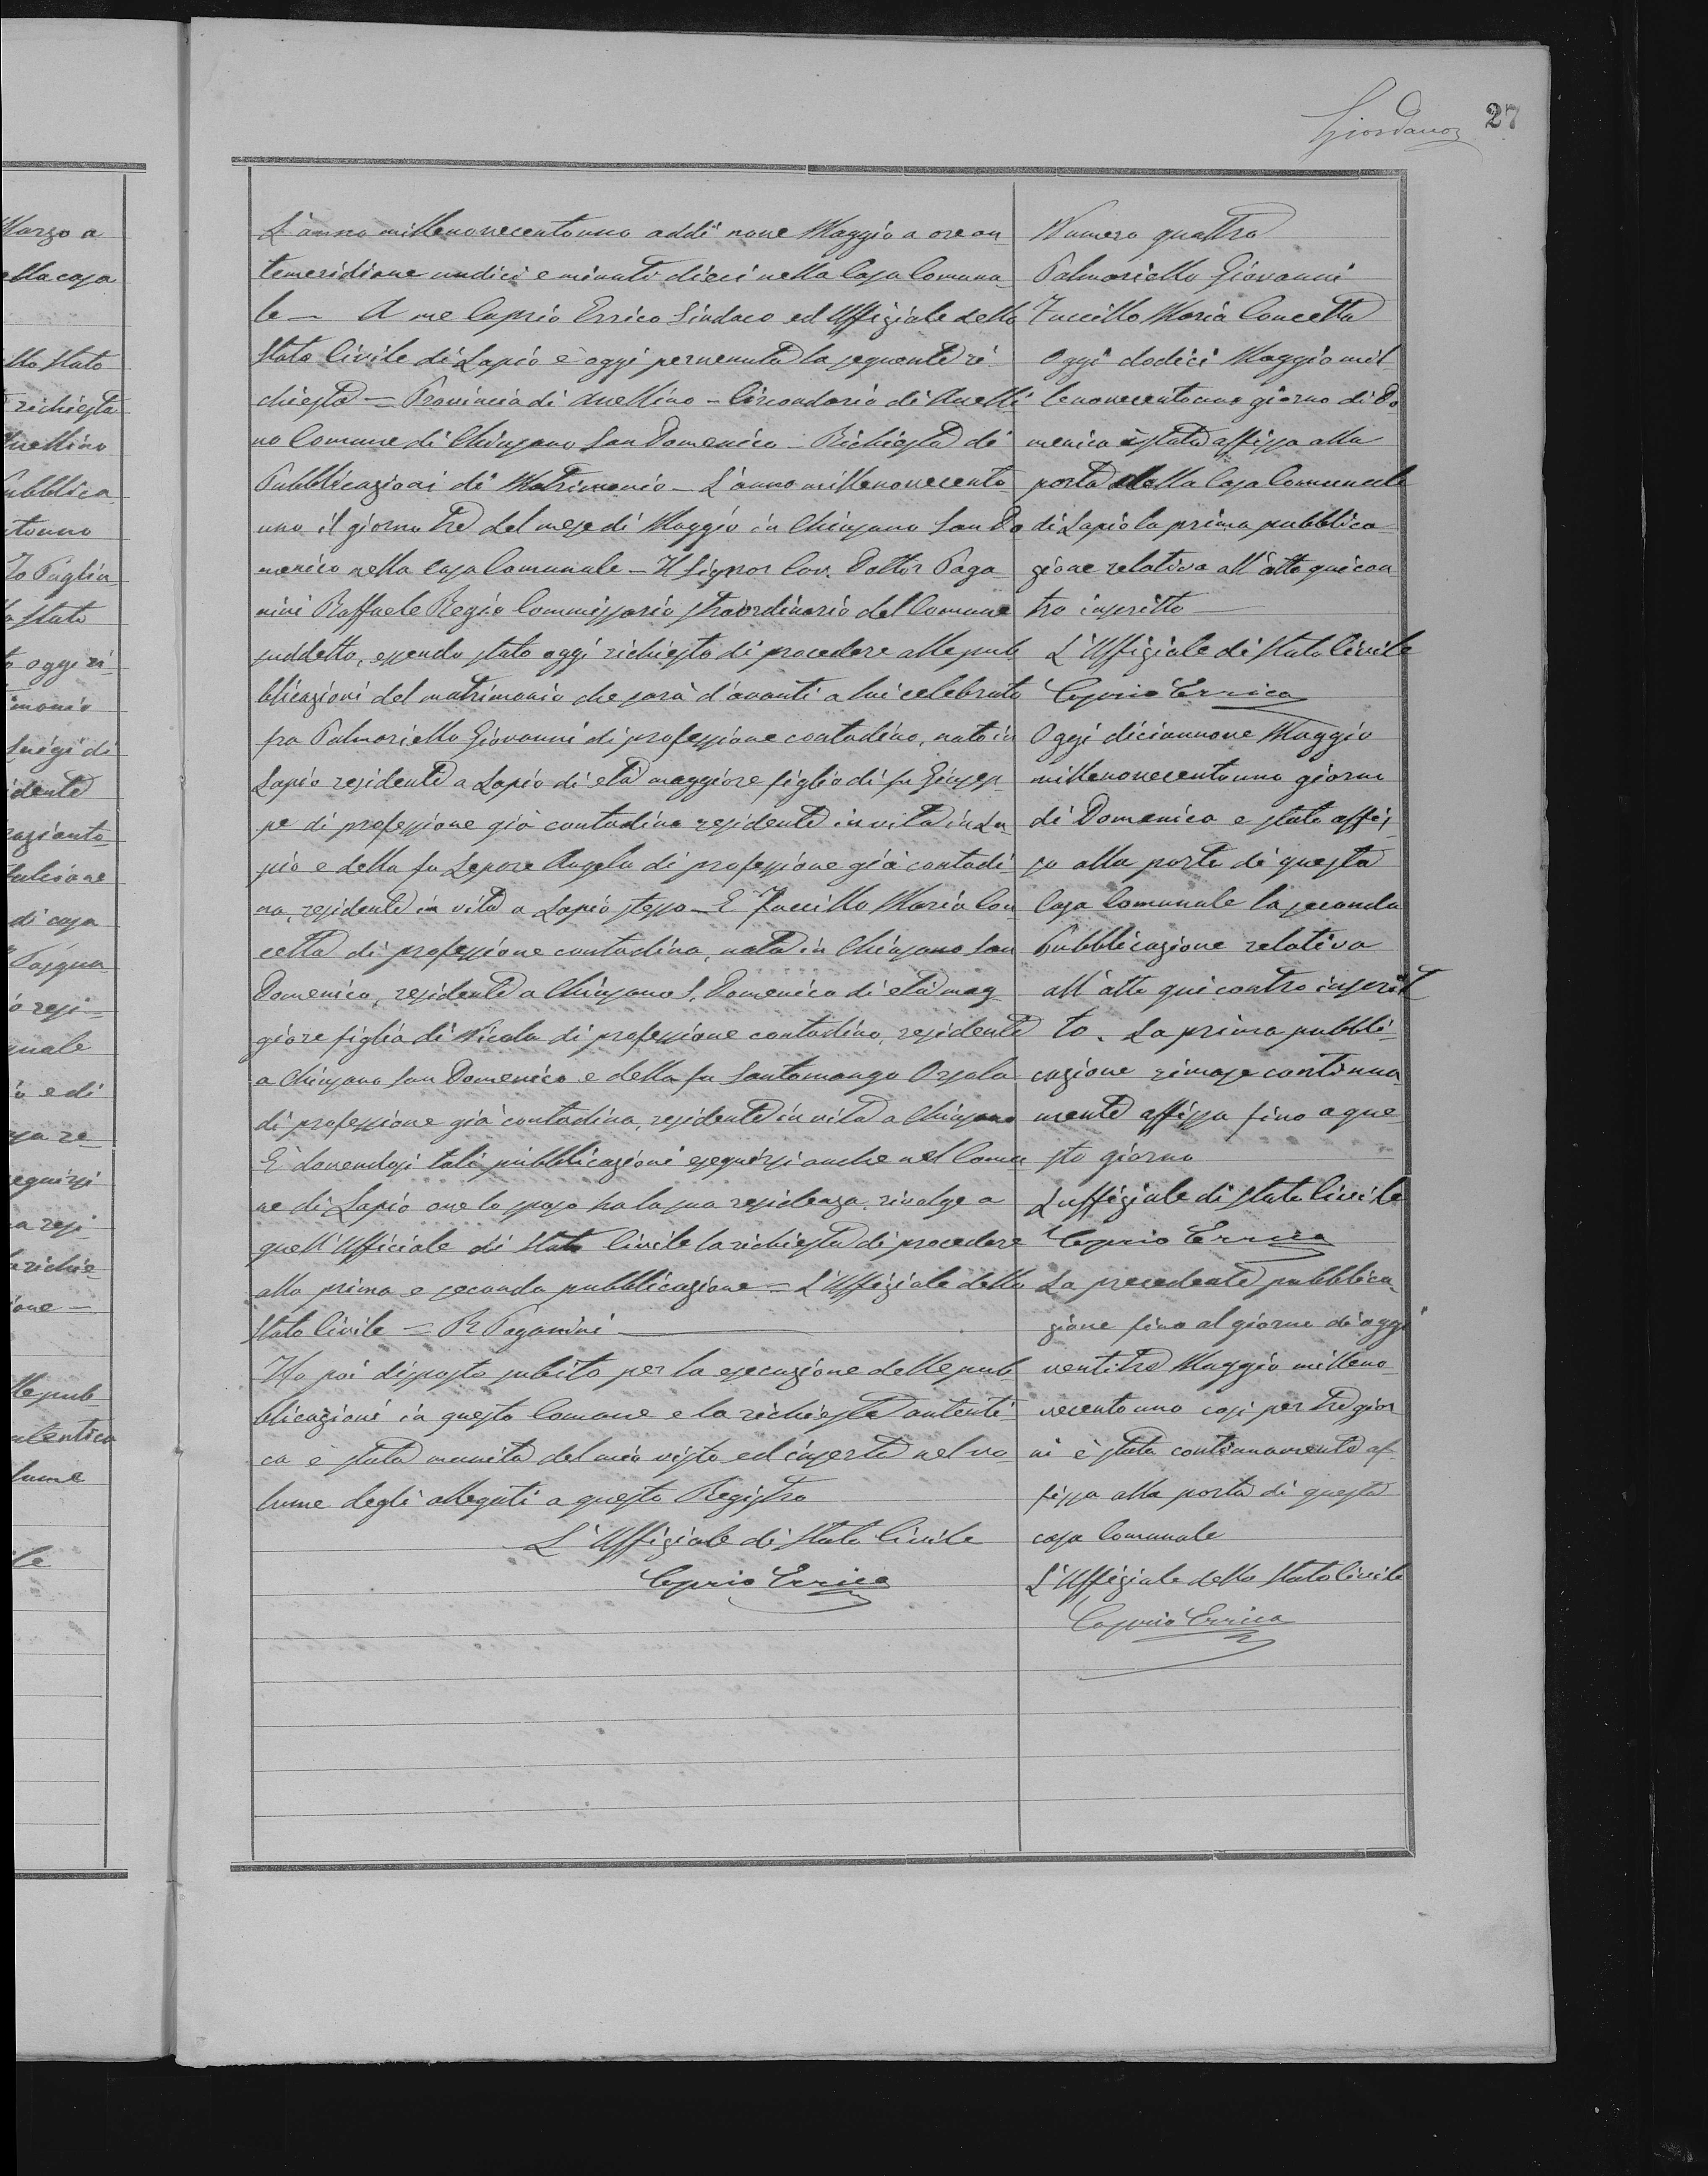 Giordano 27
L'anno millenovecentouno addì nove Maggio a ore an
temeridiane undici e minuti dieci nella Casa Comuna
le — A me Caprio Errico Sindaco ed Uffiziale dello
Stato Civile di Lapio è oggi pervenuta la seguente ri
chiesta = Provincia di Avellino - Circondario di Avelli
no Comune di Chiusano San Domenico - Richiesta di
Pubblicazioni di Matrimonio - L'anno millenovecento
uno il giorno tre del mese di Maggio in Chiusano San Do
menico nella Casa Comunale - Il Signor Cav. Dottor Paga
nini Raffaele Regio Commissario straordinario del Comune
suddetto, essendo stato oggi richiesto di procedere alle pub
blicazioni del matrimonio che sarà d'avanti a lui celebrato
fra Palmariello Giovanni di professione contadino, nato in
Lapio residente a Lapio di età maggiore figlio di fu Giusep
pe di professione già contadino residente in vita in La
pio e della fu Lepore Angela di professione già contadi
na, residente in vita a Lapio stesso - E Tuccillo Maria Con
cetta di professione contadina, nata in Chiusano San
Domenico, residente a Chiusano S. Domenico di età mag
giore figlia di Nicola di professione contadino, residente
a Chiusano San Domenico e della fu Santomango Orsola
di professione già contadina, residente in vita a Chiusano
E dovendosi tali pubblicazioni eseguirsi anche nel Comu
ne di Lapio ove lo sposo ha la sua residenza, rivolge a
quell'Ufficiale di Stato Civile la richiesta di procedere
alla prima e seconda pubblicazione = L'Uffiziale dello
Stato Civile = R Paganini
Ho poi disposto subito per la esecuzione delle pub
blicazioni in questo Comune e la richiesta autenti
ca è stata munita del mio visto ed inserta nel vo
lume degli allegati a questo Registro
L'Uffiziale di Stato Civile
Caprio Errico
Numero quattro
Palmariello Giovanni
Tuccillo Maria Concetta
Oggi dodici Maggio mil
lenovecentouno giorno di Do
menica è stata affissa alla
porta della Casa Comunale
di Lapio la prima pubblica
zione relativa all'atto qui con
tro inscritto
L'Uffiziale di Stato Civile
Caprio Errico
Oggi diciannove Maggio
millenovecentouno giorno
di Domenica e stata affis
sa alla porta di questa
Casa Comunale la seconda
Pubblicazione relativa
all'atto qui contro inscrit
to. La prima pubbli
cazione rimase continua
mente affissa fino a que
sto giorno
L'uffiziale di Stato Civile
Caprio Errico
La precedente pubblica
zione fino al giorno di oggi
ventitre Maggio milleno
vecentouno così per tre gior
ni è stata continuamente af
fissa alla porta di questa
casa Comunale
L'Uffiziale dello Stato Civile
Caprio Errico
Marzo a
ella casa
llo Stato
richiesta
Avellino
Pubblica
ntouno
a Stato
o oggi ri
imonio
Luigi di
idente
di casa
o resi
quale
o e di
sa re
eguirsi
a resi
richie
ione -
lle pub
utentica
lume
ile